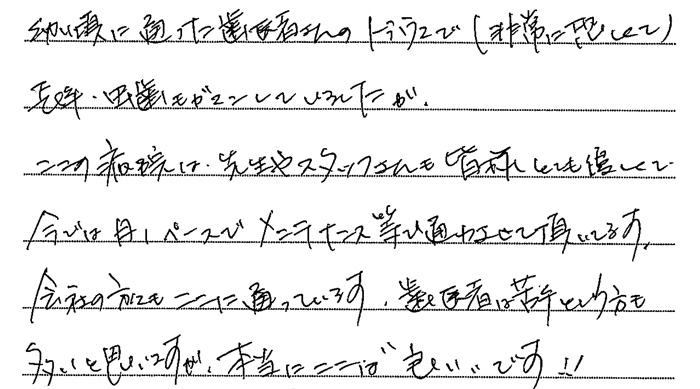 幼い頃に通った歯医者さんのトラウマで(非常に恐しくて)
長年・虫歯もガマンしていましたが、
ここの病院は、先生やスタッフさんも皆様とても優しくて
今では月1ペースでメンテナンス等で通わせて頂いてます。
会社の方々もここに通っています。歯医者は苦手という方も
多いと思いますが、本当にここは"良い"です!!